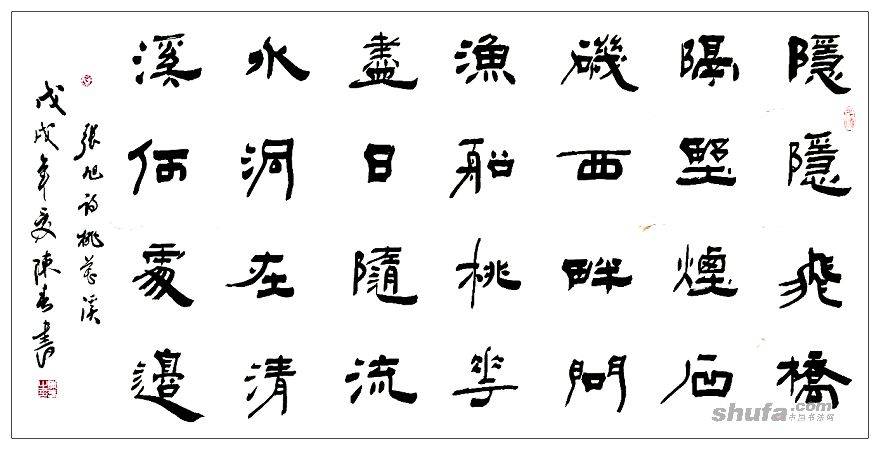 隱隱飛橋
隔野煙石
磯西畔問
漁船桃華
盡日隨流
水洞在清
溪何處邊
張旭詩桃花溪
戊戌年夏陳春書
shufa.com
中国书法网